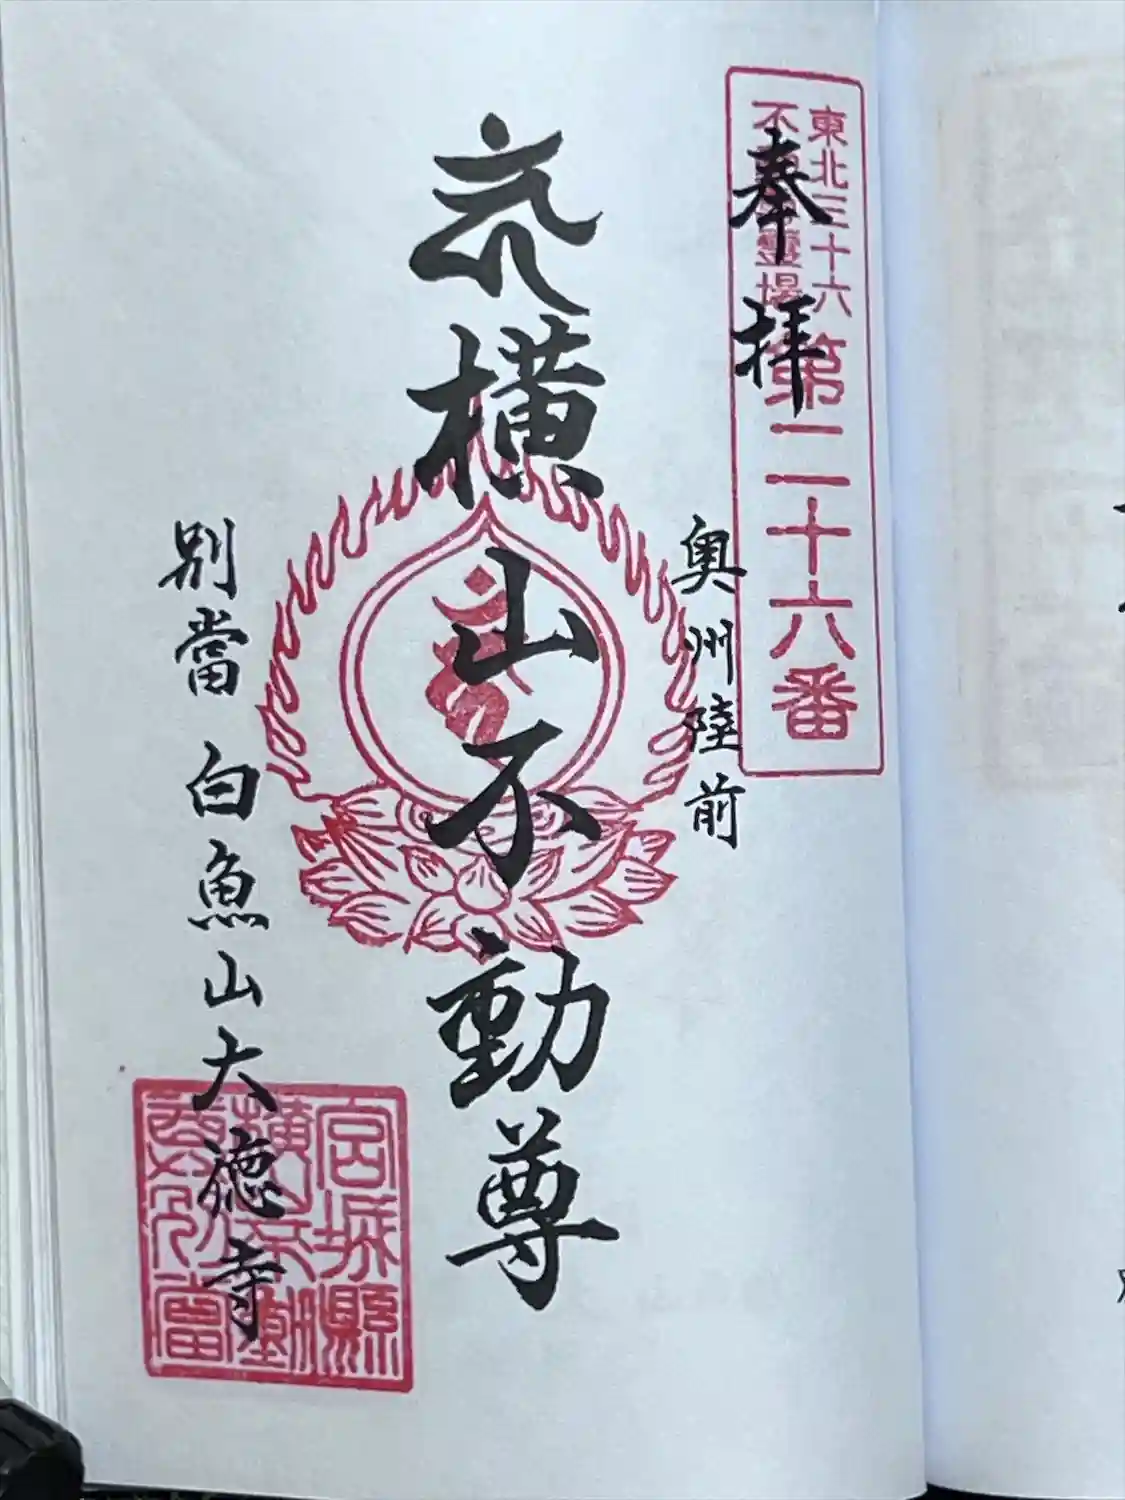 東北三十六
不動尊霊場
第二十六番
奉拝
奥州陸前
横山不動尊
別當 白魚山大徳寺
宮城縣
横山不動
尊別當